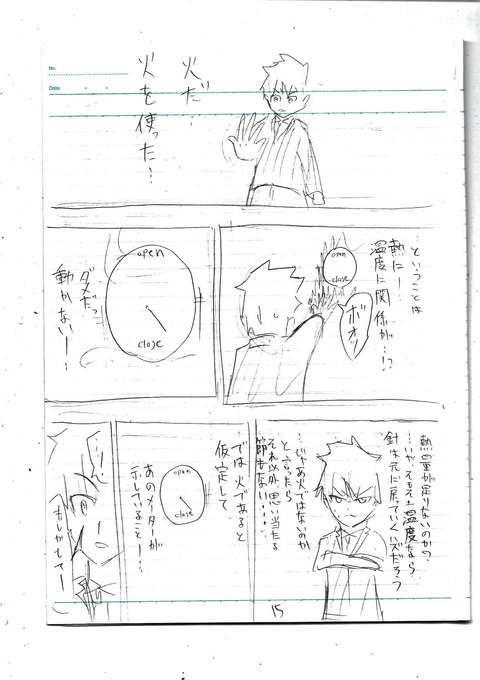 No.
Date
火だ…
火を使った…
…ということは
熱に…
温度に関係が…!?
open
close
ボオッ
open
close
ダメだっ
動かない…
熱の量が足りないのか?
…いや、そもそも温度なら
針は元に戻っていくハズだろう
…じゃあ火ではないのか
と言ったら
それ以外思い当たる
節もない…
では火であると
仮定して
open
close
あのメーターが
示していること…
…!
もしかして…
15